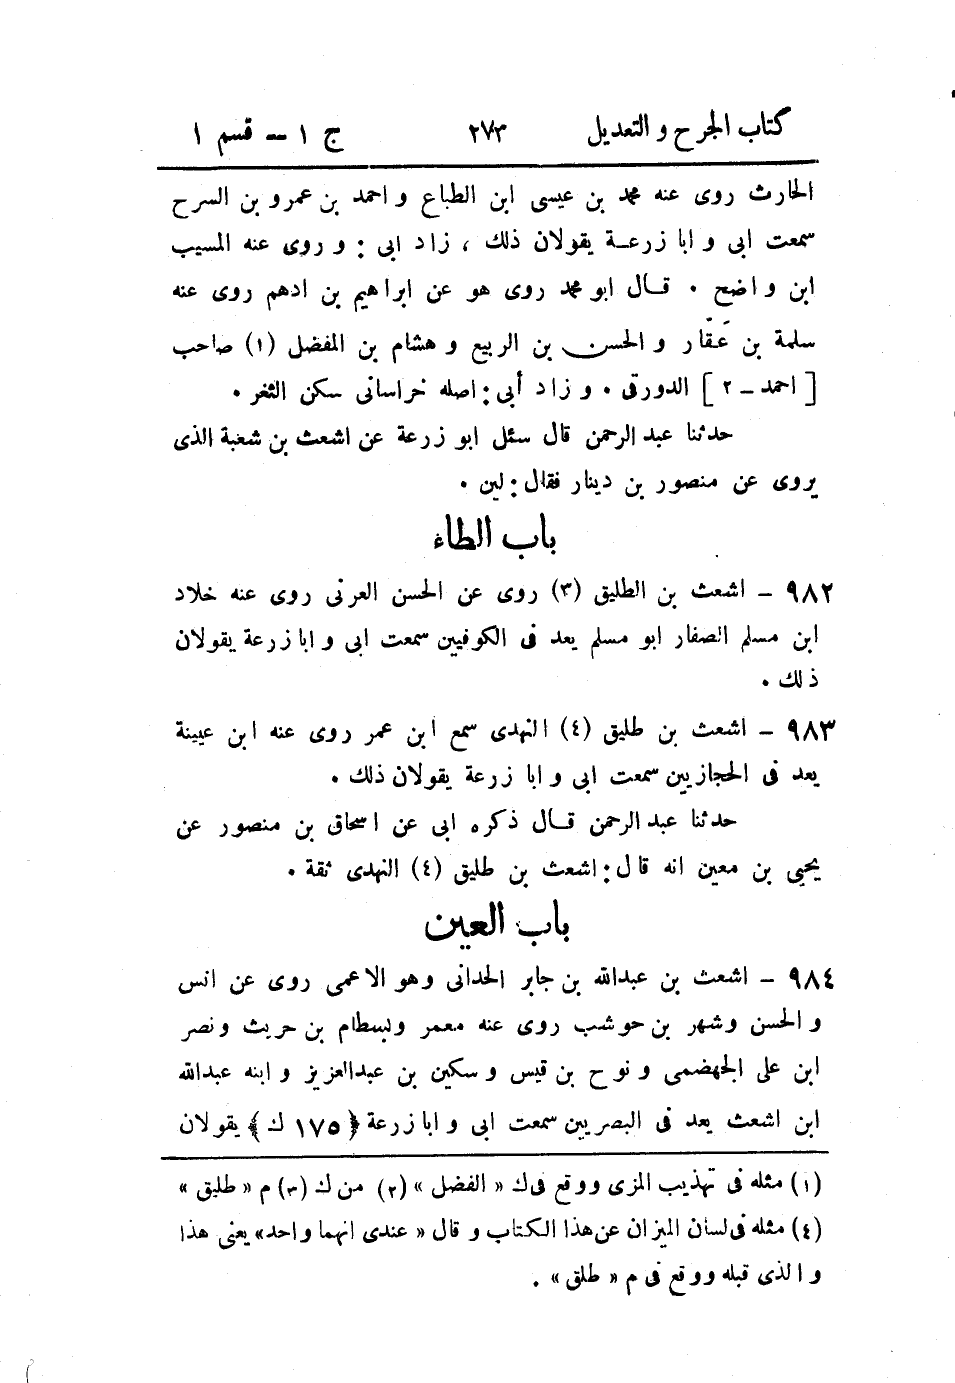 كتاب الجرح و التعديل ٢٧٣ ج ١ – قسم ١
الحارث روى عنه محمد بن عيسى ابن الطباع و احمد بن عمرو بن السرح
سمعت ابى و ابا زرعة يقولان ذلك ، زاد ابى : و روى عنه المسيب
ابن واضح . قال ابو محمد روى هو عن ابراهيم بن ادهم روى عنه
سلمة بن عَقّار و الحسن بن الربيع و هشام بن المفضل (١) صاحب
[ احمد – ٢ ] الدورقى . و زاد أبى : اصله خراسانى سكن الثغر .
حدثنا عبد الرحمن قال سئل ابو زرعة عن اشعث بن شعبة الذى
يروى عن منصور بن دينار فقال : لين .
باب الطاء
٩٨٢ – اشعث بن الطليق (٣) روى عن الحسن العرنى روى عنه خلاد
ابن مسلم الصفار ابو مسلم يعد فى الكوفيين سمعت ابى و ابا زرعة يقولان
ذلك .
٩٨٣ – اشعث بن طليق (٤) النهدى سمع ابن عمر روى عنه ابن عيينة
يعد فى الحجازيين سمعت ابى و ابا زرعة يقولان ذلك .
حدثنا عبد الرحمن قال ذكره ابى عن اسحاق بن منصور عن
يحيى بن معين انه قال : اشعث بن طليق (٤) النهدى ثقة .
باب العين
٩٨٤ – اشعث بن عبدالله بن جابر الحدانى وهو الاعمى روى عن انس
و الحسن وشهر بن حوشب روى عنه معمر وبسطام بن حريث ونصر
ابن على الجهضمى و نوح بن قيس و سكين بن عبدالعزيز و ابنه عبدالله
ابن اشعث يعد فى البصريين سمعت ابى و ابا زرعة ﴿ ١٧٥ ك ﴾ يقولان
(١) مثله فى تهذيب المزى ووقع فى ك « الفضل » (٢) من ك (٣) م « طليق »
(٤) مثله فى لسان الميزان عن هذا الكتاب و قال « عندى انهما واحد» يعنى هذا
و الذى قبله ووقع فى م « طلق » .